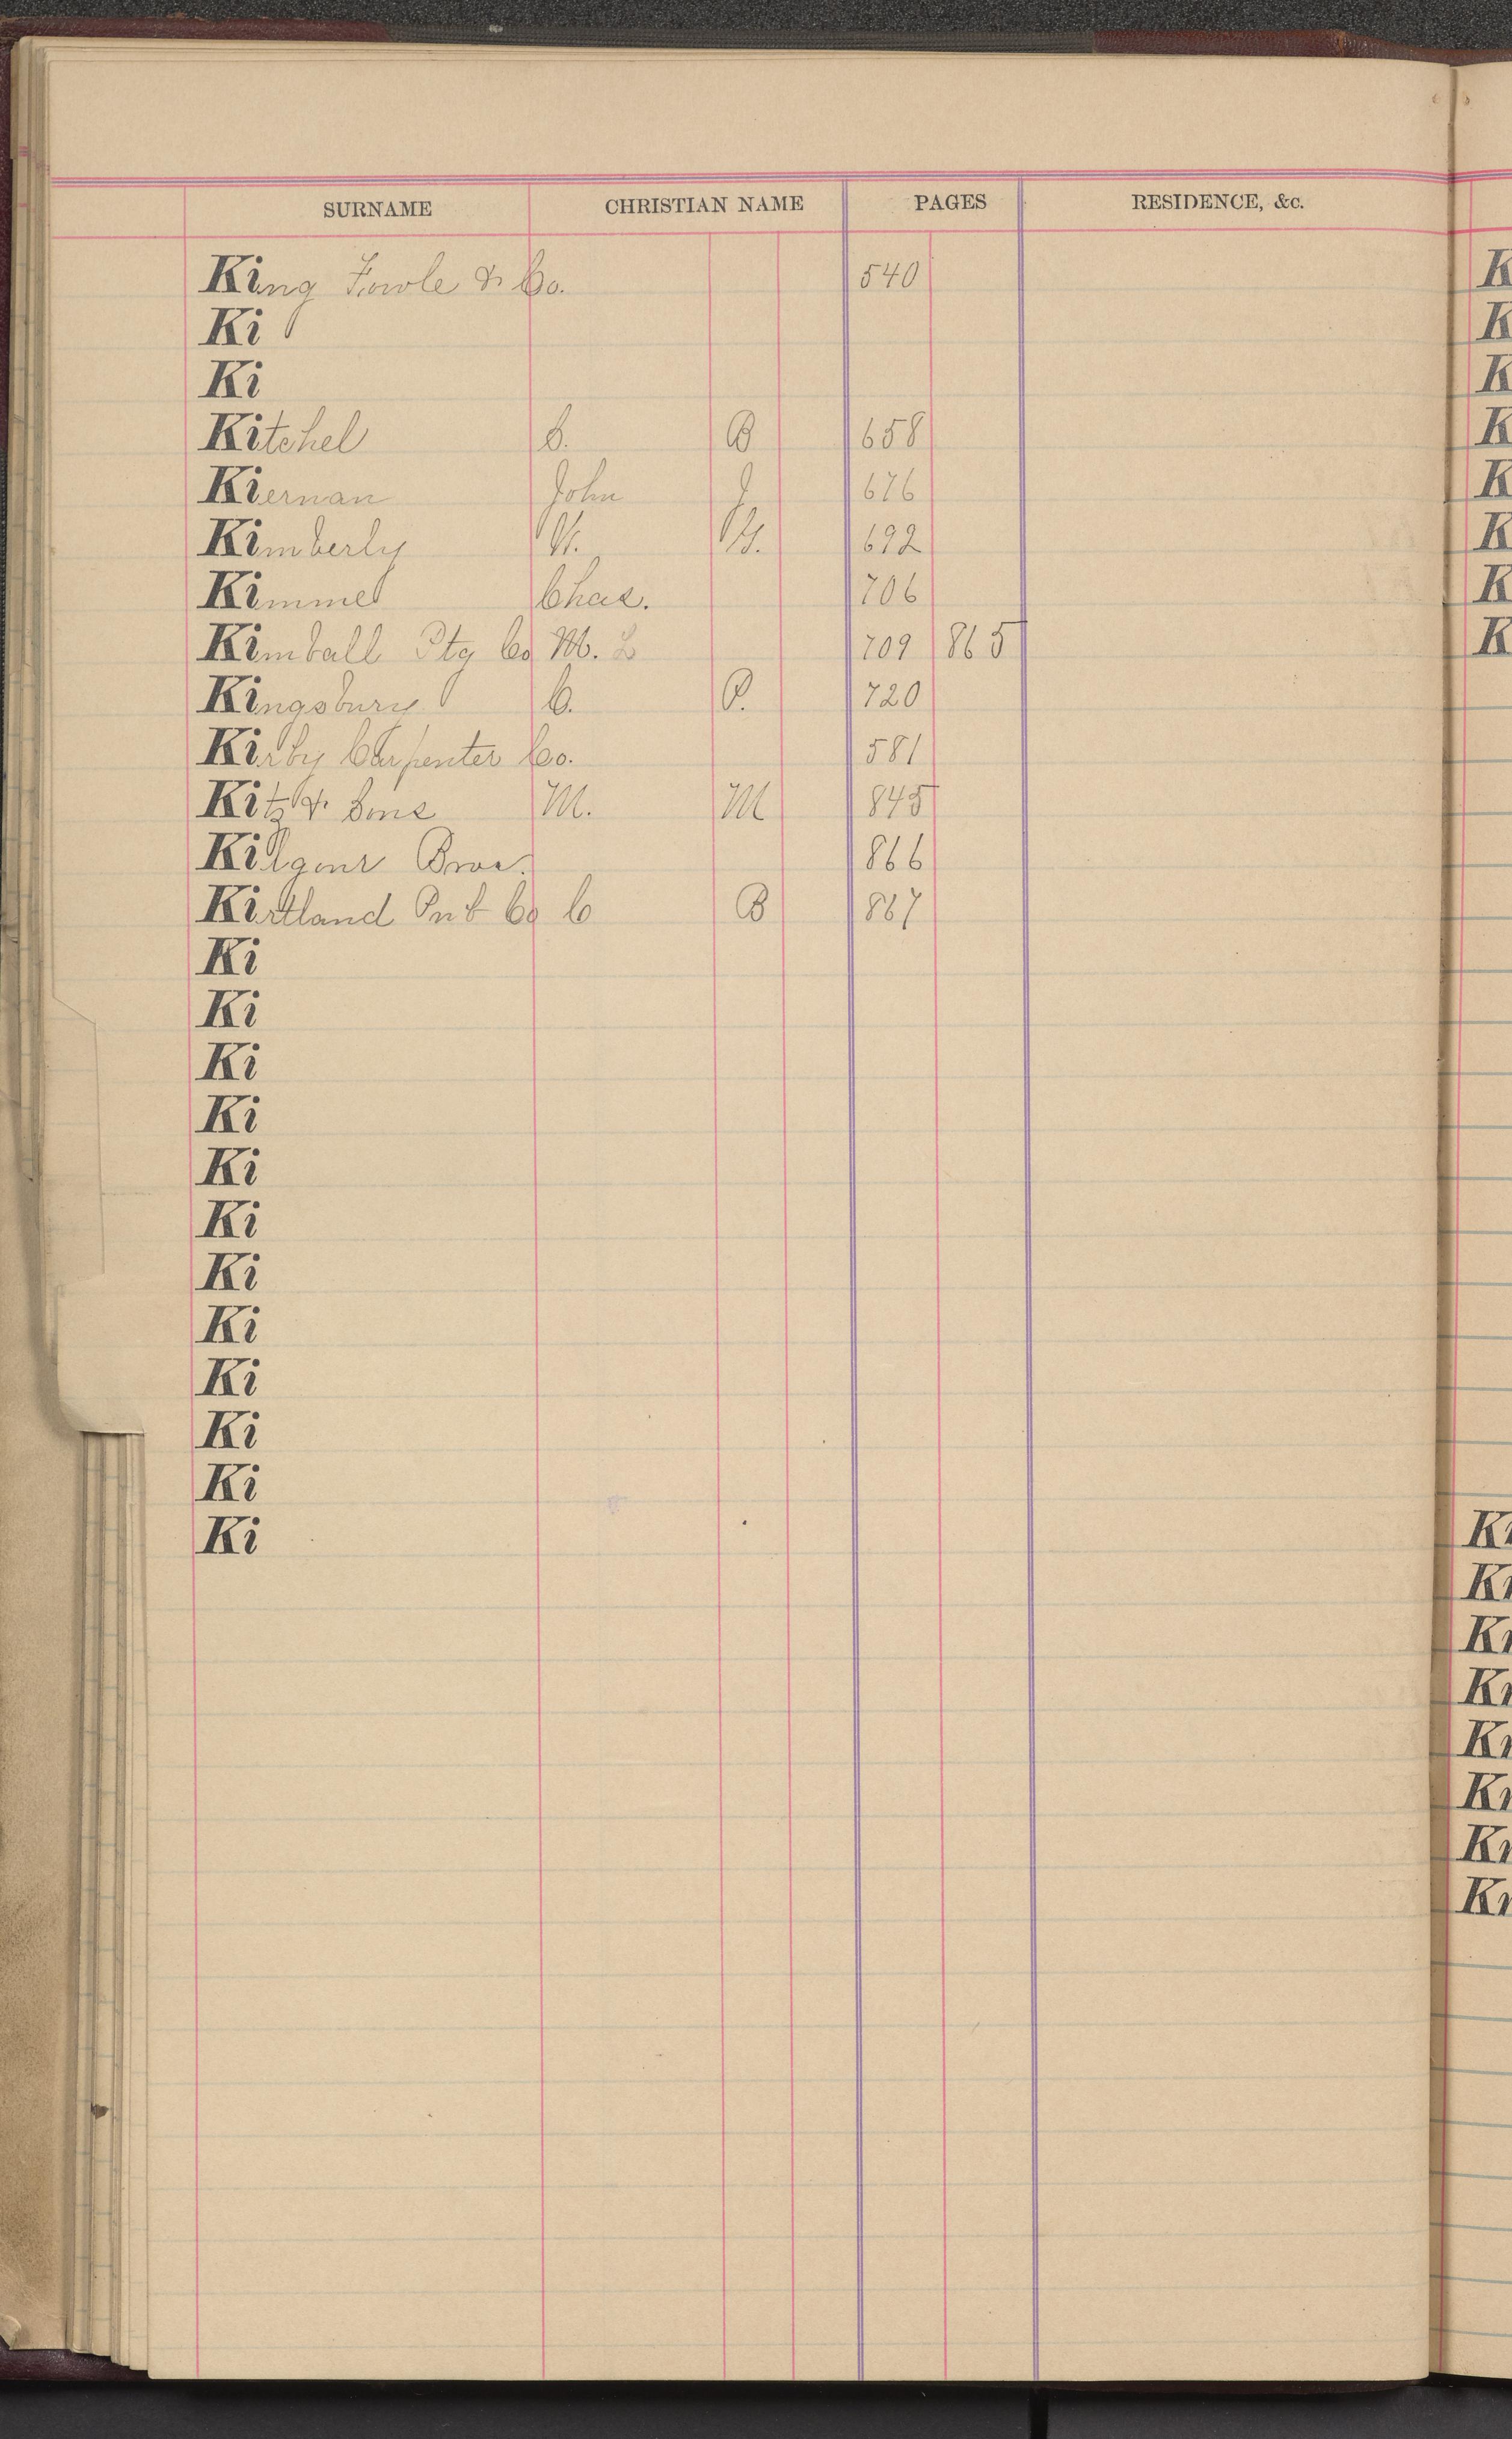 SURNAME CHRISTIAN NAME PAGES RESIDENCE, &c.
King Fowle & Co. 540
Ki
Ki
Kitchel C. B 658
Kiernan John J 676
Kimberly W. H. 692
Kimmel Chas. 706
Kimball Ptg Co M. L 709 865
Kingsbury C. P. 720
Kirby Carpenter Co. 581
Kitz & Sons M. M 845
Kilgour Bros. 866
Kirtland Pub Co C B 867
Ki
Ki
Ki
Ki
Ki
Ki
Ki
Ki
Ki
Ki
Ki
Ki